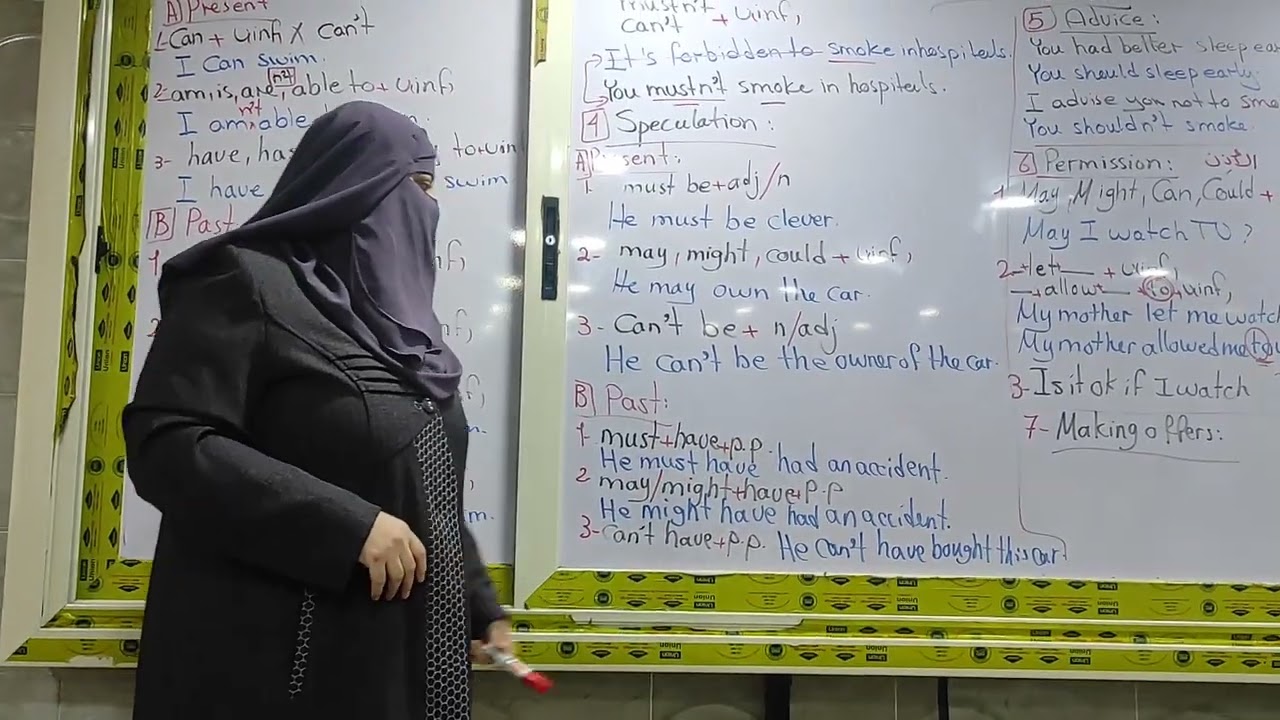 A Present
1- Can + v.inf X can't
I Can swim.
n't
2- am, is, are, able to + v.inf,
n't
I am able
3- have, has to + v.in
I have swim
B Past
1
2
mustn't
can't + v.inf,
It's forbidden to smoke in hospitals.
You mustn't smoke in hospitals.
4 Speculation :
A Present :
1- must be + adj/n
He must be clever.
2- may, might, could + v.inf,
He may own the car.
3- Can't be + n/adj
He can't be the owner of the car.
B Past :
1- must + have + p.p.
He must have had an accident.
2 may/might + have + p.p
He might have had an accident.
3- Can't have + p.p. He can't have bought this car
5 Advice :
You had better sleep ea
You should sleep early.
I advise you not to smo
You shouldn't smoke.
6 Permission :
1 May, Might, Can, Could +
May I watch TV ?
2- let + v.inf,
allow to v.inf,
My mother let me watch
My mother allowed me to
3- Is it ok if I watch
7- Making offers :
Union